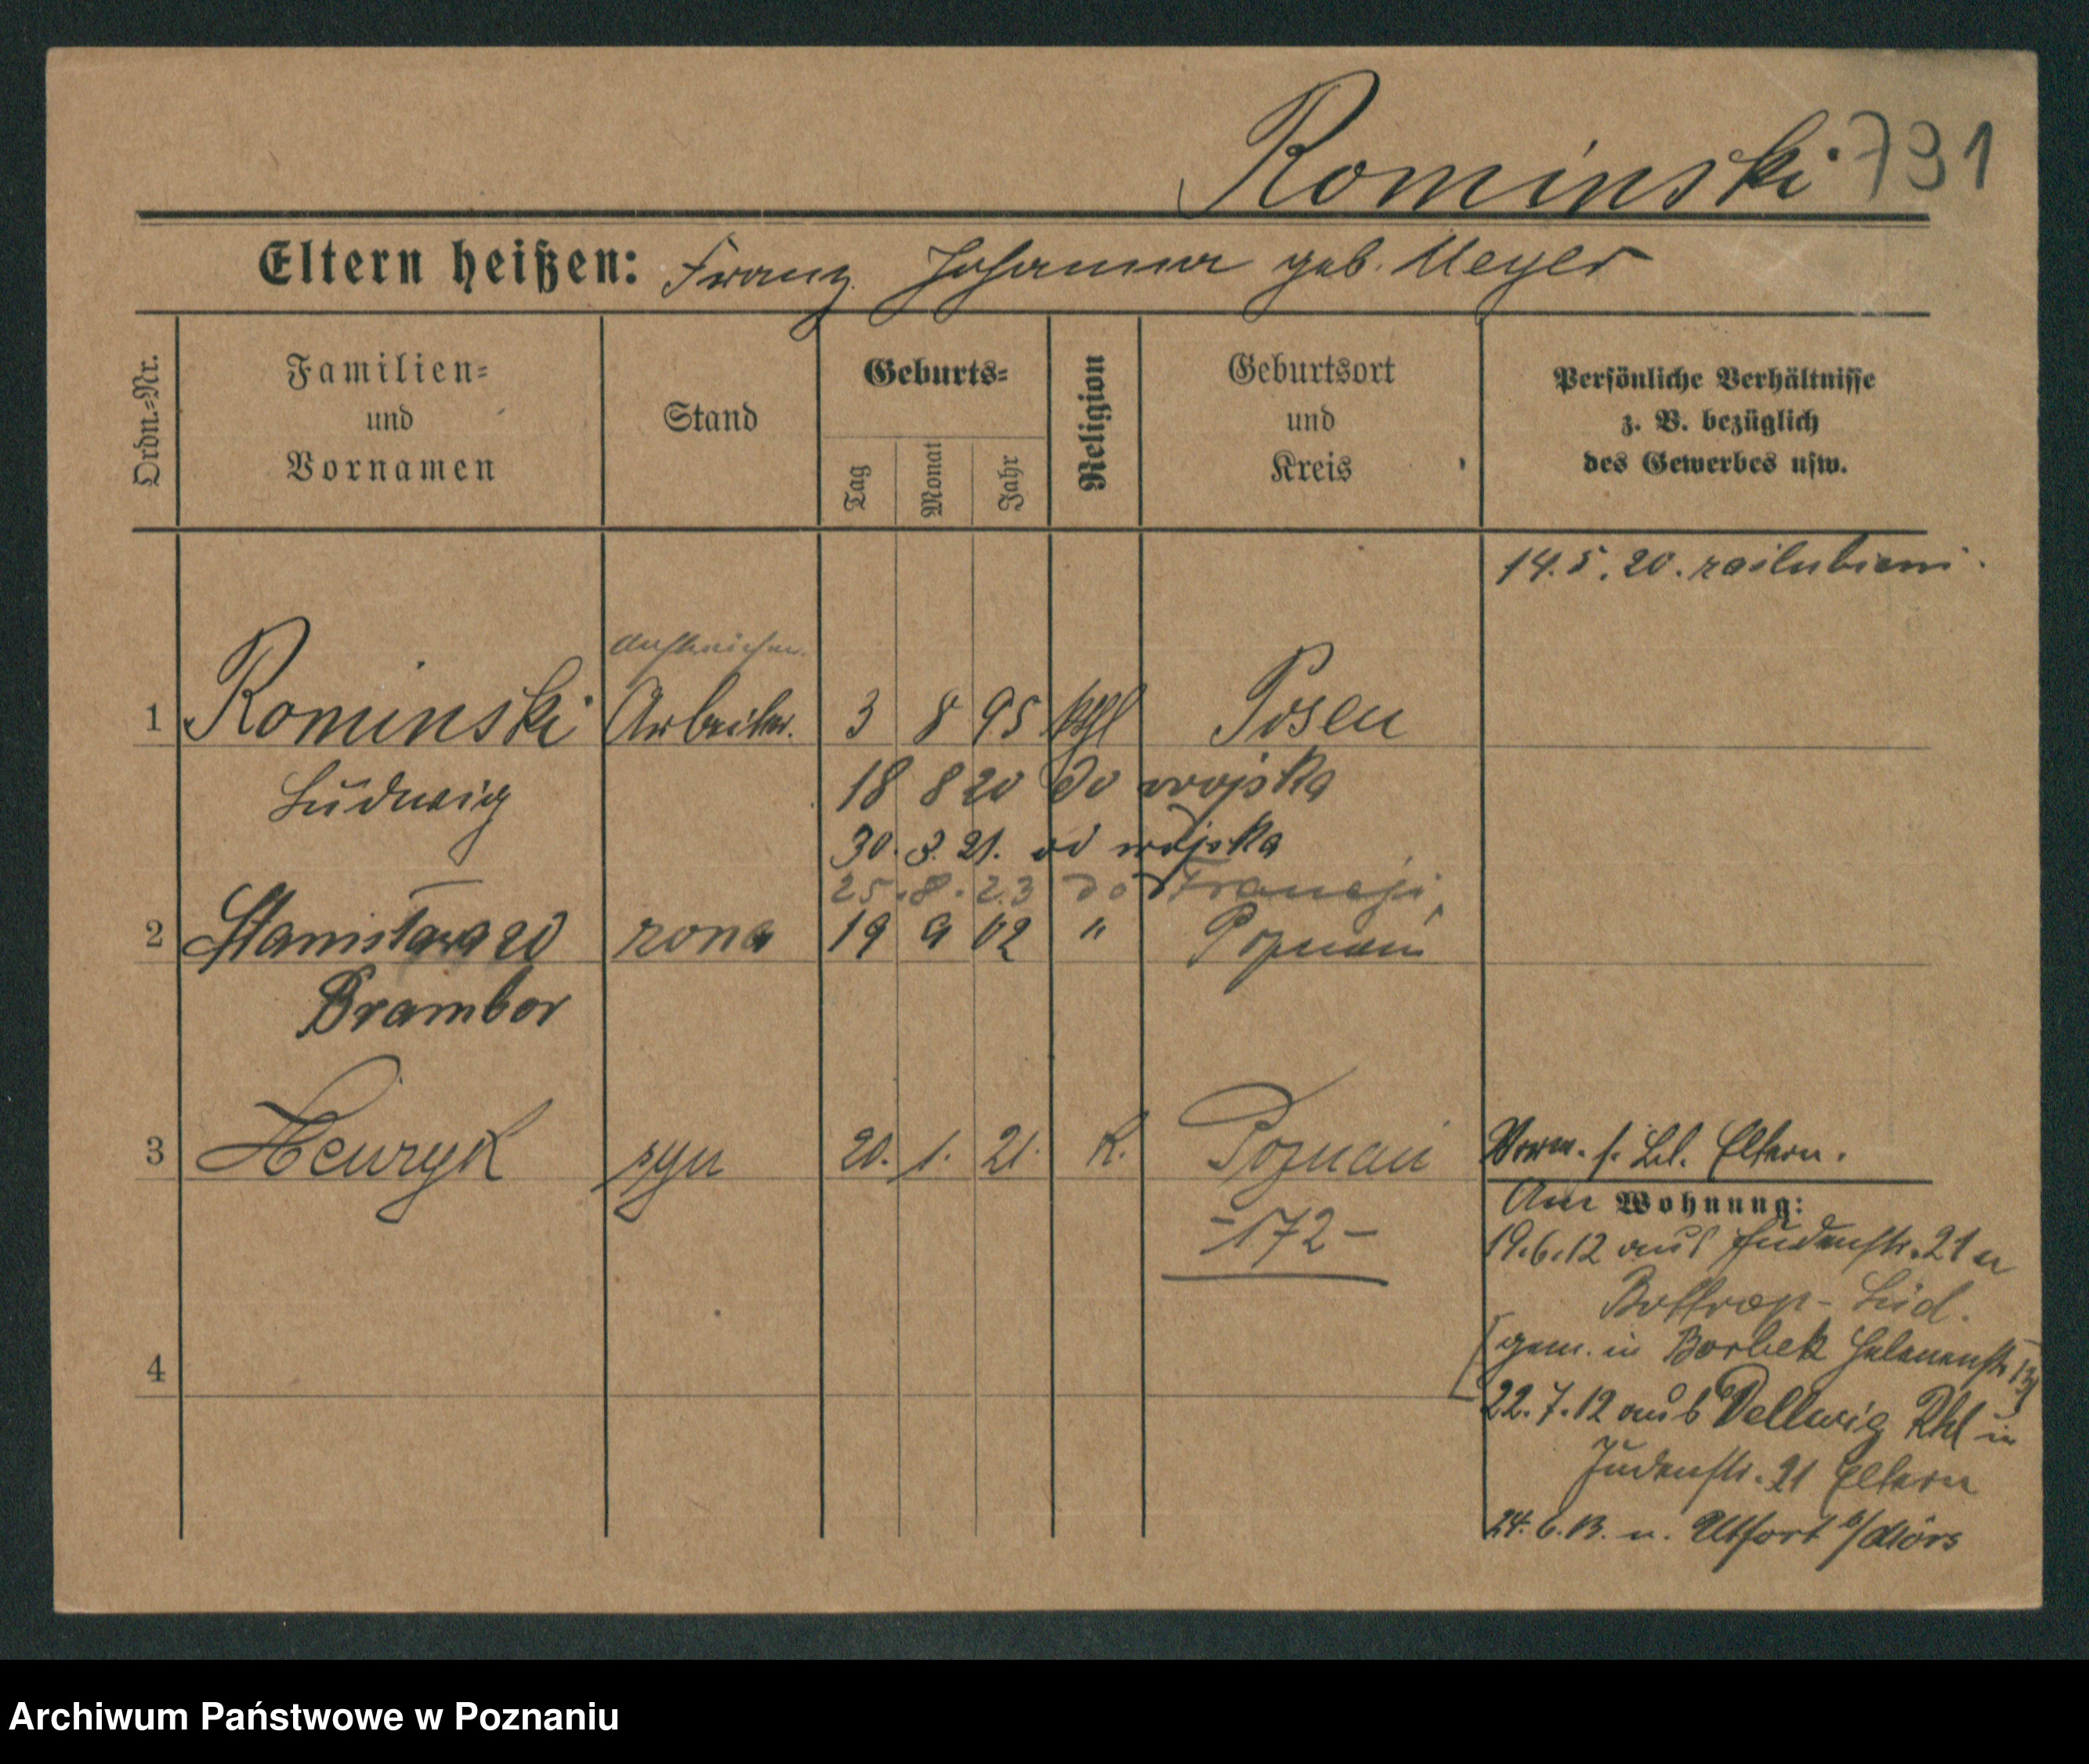 Rominski 791
Eltern heißen: Franz Johanna geb. Meyer
Ordn.=Nr.
Familien=
und
Vornamen
Stand
Geburts=
Tag
Monat
Jahr
Religion
Geburtsort
und
Kreis
Persönliche Verhältnisse
z. B. bezüglich
des Gewerbes usw.
14. 5. 20. zaślubieni
1 Rominski Arbeiter. 3 8 95 kthl Posen
Ludwig
18 8 20 do wojska
30. 3. 21. od wojska
25. 8. 23 do Francji
2 Stanisława zd żona 19 9 02 " Poznań
Brambor
3 Henryk syn 20. 1. 21. K. Poznań
-172-
Eltern.
Wohnung:
19.6.12 aus Judenstr. 21 n
Bottrop - Lud.
gem. in Borbek Helenenstr
22.7.12 aus Dellwig Rhl in
Judenstr. 21 Eltern
4
24. 6. 13. n. Utfort b/Mörs
Archiwum Państwowe w Poznaniu